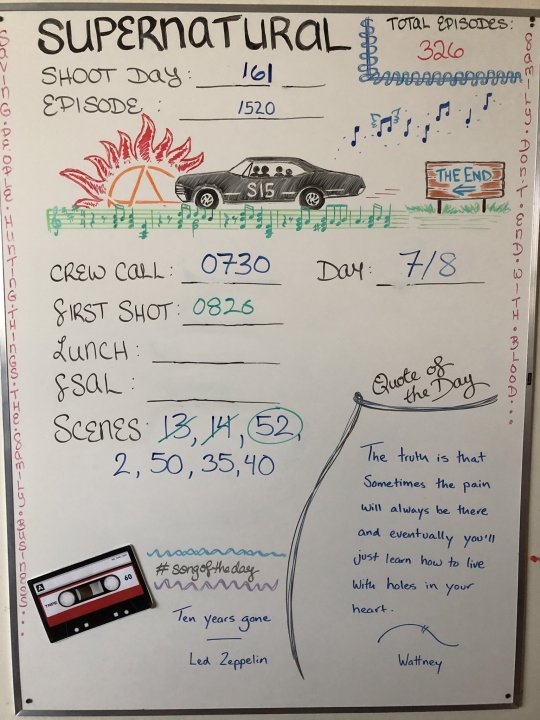 SUPERNATURAL
TOTAL EPISODES:
326
SHOOT DAY: 161
EPISODE : 1520
S15
THE END
CREW CALL: 0730
DAY: 7/8
FIRST SHOT: 0826
LUNCH:
FSAL:
SCENES: 13, 14, 52,
2, 50, 35, 40
Quote of
the Day
The truth is that
Sometimes the pain
will always be there
and eventually you'll
just learn how to live
with holes in your
heart.
Wattney
#songoftheday
Ten years gone
Led Zeppelin
A
60
SAVING·PEOPLE·HUNTING·THINGS·THE·FAMILY·BUSINESS...
FAMILY·DON'T·END·WITH·BLOOD...